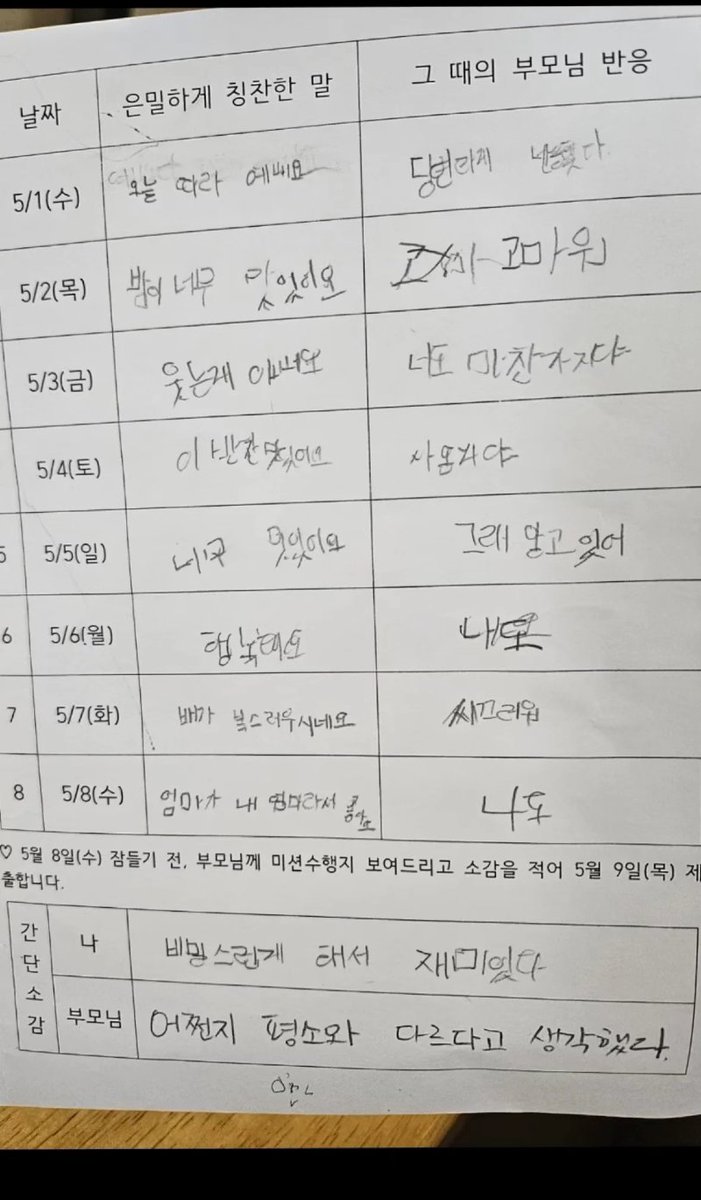 날짜 은밀하게 칭찬한 말 그 때의 부모님 반응
5/1(수) 오늘 따라 에뻐요
5/2(목) 밥이 너무 맛있이요 고마워
5/3(금) 웃는게 너도 마찬가지다
5/4(토) 이 반찬 맛있어요 사온거야
5/5(일) 멋있어요 그래 알고 있어
6 5/6(월) 행복해요 내도
7 5/7(화) 배가 복스러우시네요 씨끄러워
8 5/8(수) 엄마가 내 엄마라서 좋아요 나도
♡ 5월 8일(수) 잠들기 전, 부모님께 미션수행지 보여드리고 소감을 적어 5월 9일(목) 제
출합니다.
간단소감
나 비밍스럽게 해서 재미있다
부모님 어쩐지 평소와 다르다고 생각했다.